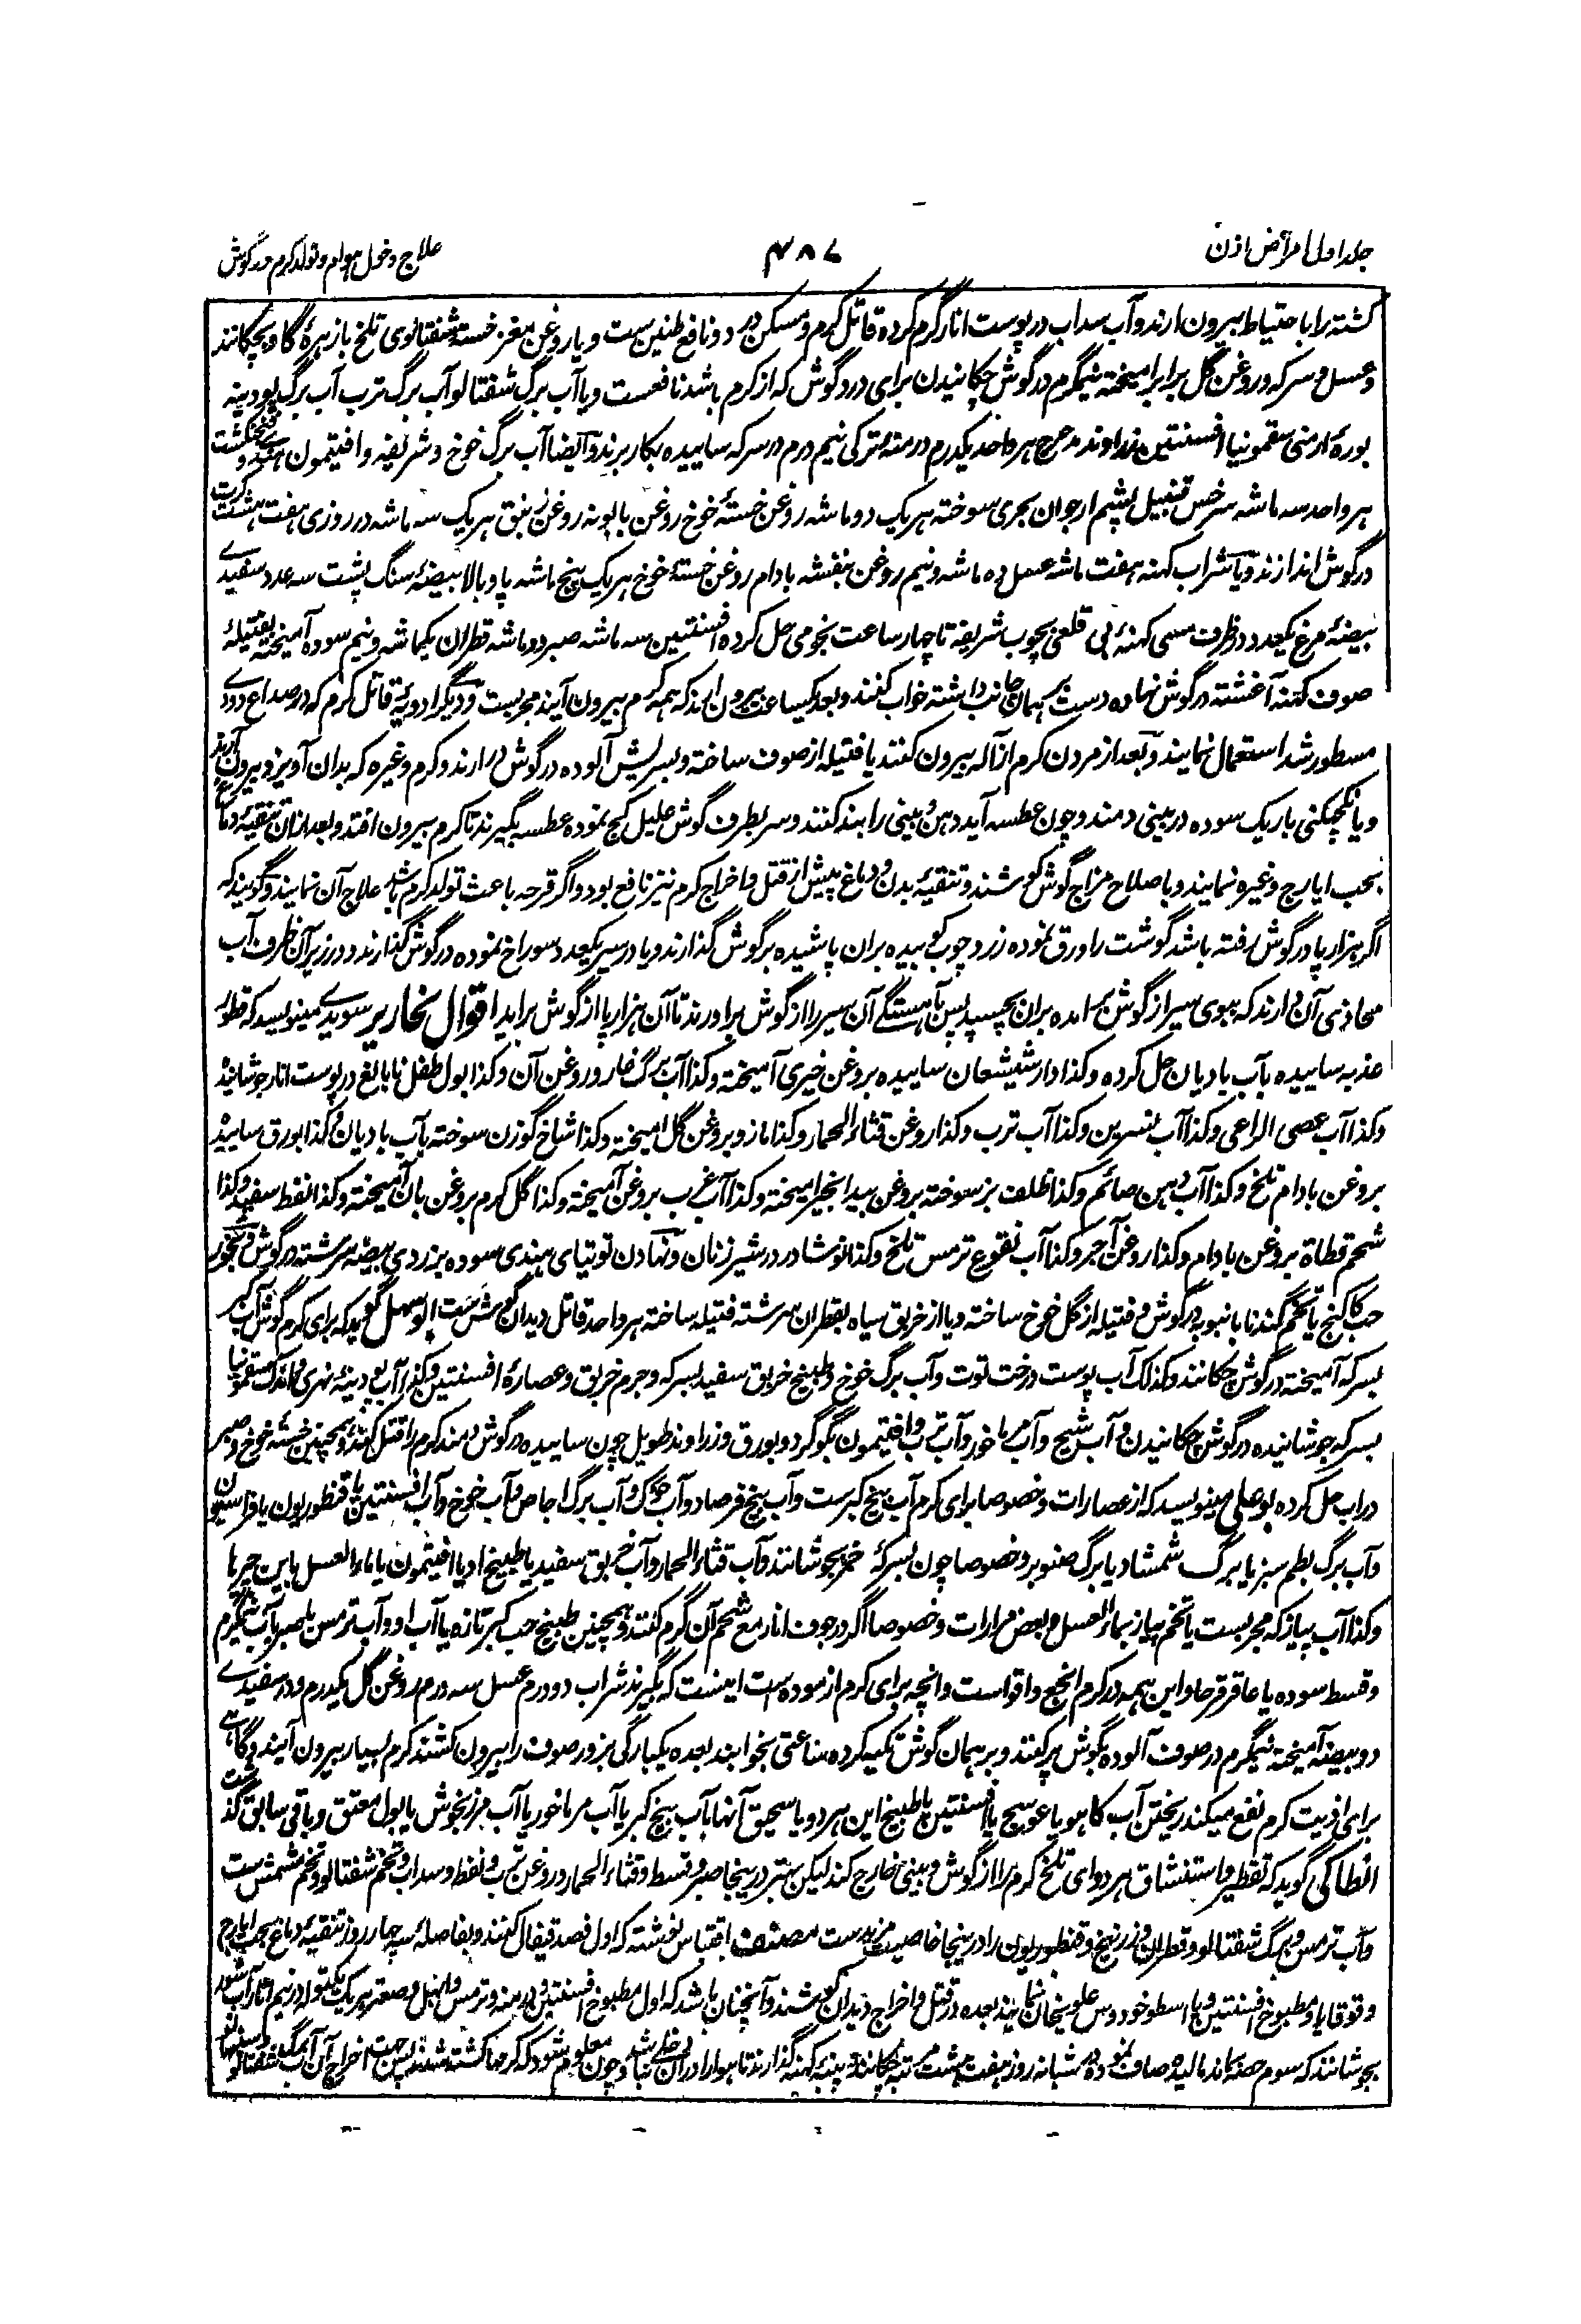 جلد اول امراض اذن
۴۸۷
علاج دخول ہوام و تولد کرم در گوش
کشته را باحتیاط بیرون ارند و آب سداب در پوست انار گرم کرده قاتل کرم و مسکن درد و نافع طنین ست و یا روغن مغز خستهٔ شفتالوی تلخ با زہرهٔ گاو بچکانند
و عسل و سرکه و روغن گل برابر امیخته نیمگرم در گوش چکانیدن برای درد گوش که از کرم باشد نافعست و یا آب برگ شفتالو آب برگ ترب آب برگ پودینه
بورهٔ ارمنی سقمونیا افسنتین زراوند مدحرج ہر واحد یکدرم درمنه ترکی نیم درم در سرکه ساییده بکار برند و ایضا آب برگ خوخ و شریفه و افتیمون
ہر واحد سه ماشه سرخس قنبیل پشم ارجوان بحری سوخته ہر یک دو ماشه روغن خستهٔ خوخ روغن بابونه روغن زنبق ہر یک سه ماشه در روزی ہفت ہشت کرت
در گوش اندازند و یا شراب کہنه ہفت ماشه عسل ده ماشه و نیم روغن بنفشه بادام روغن خستهٔ خوخ ہر یک پنج ماشه پاو بالا بیضهٔ سنگ پشت سه عدد سفیدے
بیضهٔ مرغ یکعدد در ظرف مسی کہنهٔ بی قلعی بچوب شریفه تا چہار ساعت نجومی حل کرده افسنتین سه ماشه صبر دو ماشه قطران یکماشه و نیم سوده آمیخته بفتیلهٔ
صوف کہنه آغشته در گوش نہاده دست بر ہمان جانب داشته خواب کنند و بعد یکساعت بیرون ارند که ہمه کرم بیرون آیند مجربست و دیگر ادویهٔ قاتل کرم که در صداع دودے
مسطور شد استعمال نمایند و بعد از مردن کرم از آله بیرون کنند یا فتیله از صوف ساخته و بسریش آلوده در گوش در ارند و کرم وغیره که بدان آویزد بیرون آرند
و یا نکچهکنی باریک سوده در بینی دمند و چون عطسه آید دہن و بینی را بند کنند و سر بطرف گوش علیل کج نموده عطسه بگیرند تا کرم بیرون افتد و بعد ازان تنقیهٔ دماغ
بحب ایارج وغیره نمایند و باصلاح مزاج گوش کوشند و تنقیهٔ بدن و دماغ پیش از قتل و اخراج کرم نیز نافع بود و اگر قرحه باعث تولد کرم باشد علاج آن نمایند و گویند که
اگر ہزارپا در گوش رفته باشد گوشت را ورق نموده زرد چوب کوبیده بران پاشیده بر گوش گذارند و یا در سیر یکعدد سوراخ نموده در گوش گذارند و در زیر آن ظرف آب
محاذی آن دارند که ببوی سیر از گوش برامده بران بچسپد پس بآہستگے آن سیر را از گوش براورند تا آن ہزارپا از گوش براید اقوال نحاریر سویدے مینویسد که قطور
عذبه ساییده بآب بادیان حل کرده و کذا دارشیشعان ساییده بروغن خیری آمیخته و کذا آب برگ غار و روغن آن و کذا بول طفل نابالغ در پوست انار جوشانیده
و کذا آب عصی الراعی و کذا آب نسرین و کذا آب ترب و کذا روغن قثاء الحمار و کذا مازو بروغن گل امیخته و کذا شاخ گوزن سوخته بآب بادیان و کذا بورق ساییده
بروغن بادام تلخ و کذا آب دہن صائم و کذا ظلف بز سوخته بروغن بیدانجیر امیخته و کذا آب غرب بروغن آمیخته و کذا گل کرم بروغن بان آمیخته و کذا نفط سفید و کذا
شحم قطاة بروغن بادام و کذا روغن آجر و کذا آب نقوع ترمس تلخ و کذا نوشادر در شیر زنان و نہادن توتیای ہندی سوده بزردی بیضه سرشته در گوش و بخور
حب کاکنج یا تخم گندنا بانبوبه در گوش و فتیله از گل خوخ ساخته و یا از خربق سیاه بقطران سرشته فتیله ساخته ہر واحد قاتل دیدان گوش ست ابو سہل گوید که برای کرم گوش آب کبر
بسرکه آمیخته در گوش چکانند و کذلک آب پوست درخت توت و آب برگ خوخ و طبیخ خربق سفید بسرکه و جرم خربق و عصارهٔ افسنتین و کذا آب پودینهٔ نہری و اندک سقمونیا
بسرکه جوشانیده در گوش چکانیدن و آب شیح و آب مر ماخور و آب ترب و افتیمون و گوگرد و بورق و زراوند طویل چون ساییده در گوش دمند کرم را قتل کنند و ہمچنین خستهٔ خوخ و صبر
دراب حل کرده بو علی مینویسد که از عصارات و خصوصا برای کرم آب بیخ کبرست و آب بیخ فرصاد و آب حوک و آب برگ اجاص و آب خوخ و آب افسنتین یا قنطوریون یا فراسیون
و آب برگ بطم سبز یا برگ شمشاد یا برگ صنوبر و خصوصا چون بسرکهٔ خمر بجوشانند و آب قثاء الحمار و آب خربق سفید یا طبیخ او یا افتیمون یا ماء العسل باین چیزہا
و کذا آب پیاز که مجربست یا تخم پیاز بماء العسل و بعض مرارات و خصوصا اگر در جوف انار مع شحم آن گرم کنند و ہمچنین طبیخ حب کبر تازه یا آب او و آب ترمس یا صبر بآب نیمگرم
و قسط سوده یا عاقرقرحا و این ہمه در کرم انجع و اقواست و انچه برای کرم ازموده است اینست که بگیرند شراب دو درم عسل سه درم روغن گل یکدرم و در سفیدے
دو بیضه آمیخته نیمگرم در صوف آلوده بگوش پر کنند و بر ہمان گوش تکیه کرده ساعتی بخوابند بعده یکبارگی بزور صوف را بیرون کشند کرم بسیار بیرون آیند و گاہے
برای اذیت کرم نفع میکند ریختن آب کاہو یا عوسج یا افسنتین یا طبیخ این ہر دو یا سحیق آنہا بآب بیخ کبر یا آب مر ماخور یا آب مرزنجوش یا بول معتق و باقی سابق گذشت
انطاکی گوید که تقطیر و استنشاق ہر دوای تلخ کرم را از گوش و بینی خارج کند لیکن بہتر درینجا صبر و قسط و قثاء الحمار و روغن ترب و نفط و سداب و تخم شفتالو و تخم مشمش ست
و آب ترمس و برگ شفتالو و قطران و زرنیخ و قنطوریون را درینجا خاصیت مزیدست مصنف اقتباس نوشته که اول فصد قیفال کنند و بفاصلهٔ سه چہار روز تنقیهٔ دماغ بحب ایارج
و قوقایا و مطبوخ افسنتین و یا اسطوخودوس علویخان نمایند بعده در قتل و اخراج دیدان کوشند و آنچنان باشد که اول مطبوخ افسنتین و درمنه و ترمس و صعتر ہر یک یکتوله در نیم آثار آب شور
بجوشانند که سوم حصه ماند مالیده صاف نموده در شبانه روز ہفت ہشت مرتبه چکانند و پنبهٔ کہنه گذارند تا ہوا را دران دخلے نباشد و چون معلوم شود که کرمہا کشته شدند پس جہت اخراج آن آب برگ شفتالو